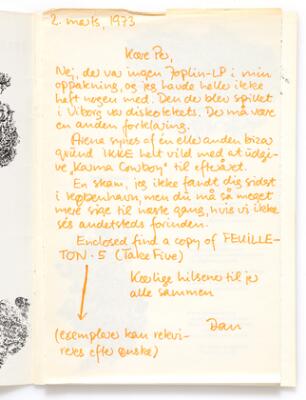 2. marts, 1973
Kære Per,
Nej, der var ingen Joplin-LP i min
oppakning, og jeg havde heller ikke
haft nogen med. Den der blev spillet
i Viborg var diskotekets. Der må være
en anden forklaring.
Arena synes af en eller anden bizar
grund IKKE helt vild med at udgi-
ve „Karma Cowboy" til efteråret.
En skam, jeg ikke fandt dig sidst
i København, men du må så meget
mere sige til næste gang, hvis vi ikke
ses andetsteds forinden.
Enclosed find a copy of FEUILLE-
TON·5 (Take Five)
Kærlige hilsener til jer
alle sammen
Dan
(exemplarer kan rekvi-
reres efter ønske)